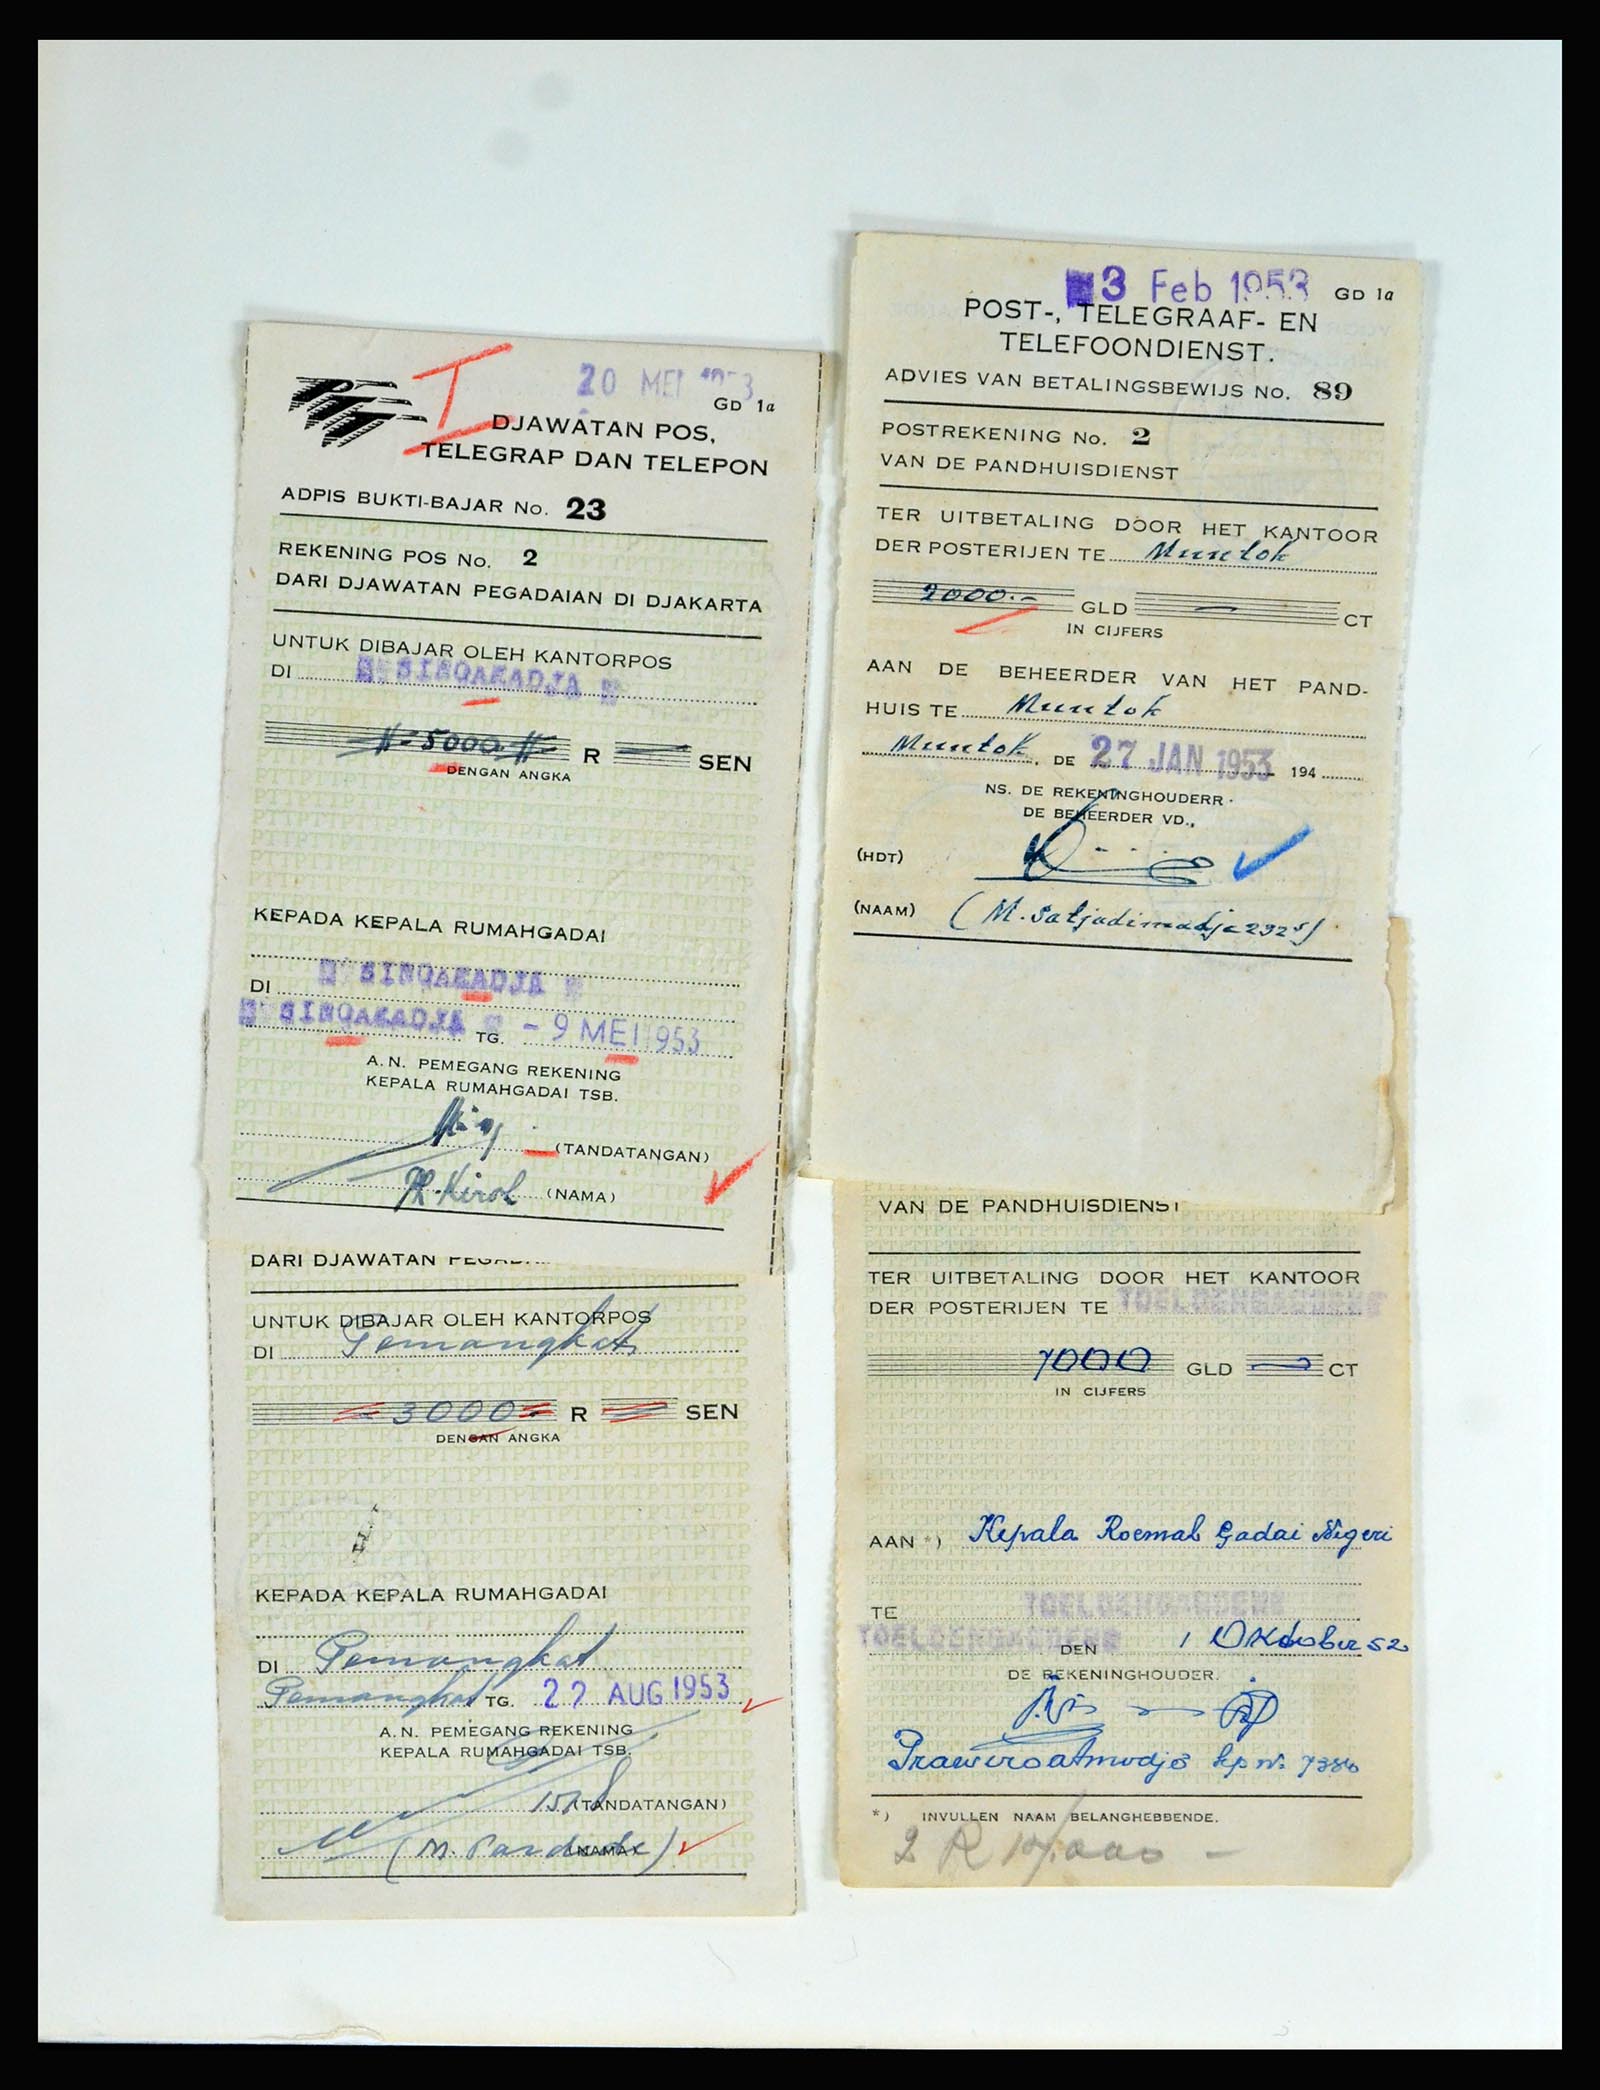 20 MEI 1953
GD 1a
PTT
I
DJAWATAN POS,
TELEGRAP DAN TELEPON
ADPIS BUKTI-BAJAR No. 23
REKENING POS No. 2
DARI DJAWATAN PEGADAIAN DI DJAKARTA
UNTUK DIBAJAR OLEH KANTORPOS
DI SINGARADJA
5000 R SEN
DENGAN ANGKA
KEPADA KEPALA RUMAHGADAI
DI SINGARADJA
SINGARADJA TG. - 9 MEI 1953
A.N. PEMEGANG REKENING
KEPALA RUMAHGADAI TSB.
(TANDATANGAN)
(NAMA)
DARI DJAWATAN
UNTUK DIBAJAR OLEH KANTORPOS
DI Pemangkat
- 3000 - R SEN
DENGAN ANGKA
KEPADA KEPALA RUMAHGADAI
DI Pemangkat
Pemangkat TG. 27 AUG 1953
A.N. PEMEGANG REKENING
KEPALA RUMAHGADAI TSB.
(TANDATANGAN)
(NAMA)
3 Feb 1953 GD 1a
POST-, TELEGRAAF- EN
TELEFOONDIENST.
ADVIES VAN BETALINGSBEWIJS No. 89
POSTREKENING No. 2
VAN DE PANDHUISDIENST
TER UITBETALING DOOR HET KANTOOR
DER POSTERIJEN TE Muntok
2000.- GLD — CT
IN CIJFERS
AAN DE BEHEERDER VAN HET PAND-
HUIS TE Muntok
Muntok, DE 27 JAN 1953 194
NS. DE REKENINGHOUDERR.
DE BEHEERDER VD.,
(HDT)
(NAAM) (M. Satjadimadja 292⁵)
VAN DE PANDHUISDIENST
TER UITBETALING DOOR HET KANTOOR
DER POSTERIJEN TE
7000 GLD — CT
IN CIJFERS
AAN *) Kepala Roemah Gadai Negeri
TE
DEN 1 Oktober 52
DE REKENINGHOUDER.
Prawiroatmodjo kp no. 7380
*) INVULLEN NAAM BELANGHEBBENDE.